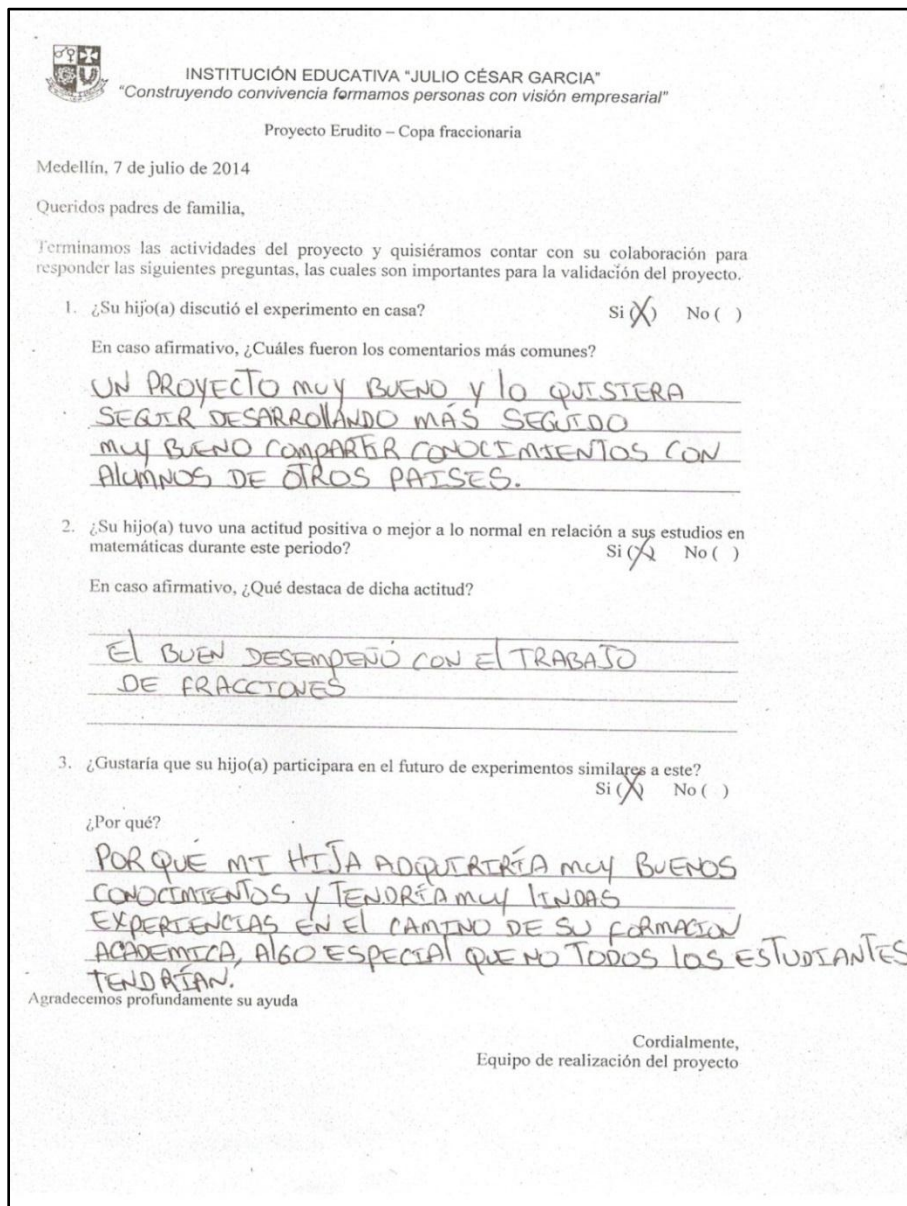 INSTITUCIÓN EDUCATIVA "JULIO CÉSAR GARCIA"
"Construyendo convivencia formamos personas con visión empresarial"
Proyecto Erudito – Copa fraccionaria
Medellín, 7 de julio de 2014
Queridos padres de familia,
Terminamos las actividades del proyecto y quisiéramos contar con su colaboración para
responder las siguientes preguntas, las cuales son importantes para la validación del proyecto.
1. ¿Su hijo(a) discutió el experimento en casa? Si (X) No ( )
En caso afirmativo, ¿Cuáles fueron los comentarios más comunes?
UN PROYECTO MUY BUENO Y lO QUISIERA
SEGUIR DESARROllANDO MÁS SEGUIDO
MUY BUENO COMPARTIR CONOCIMIENTOS CON
AlUMNOS DE OTROS PAISES.
2. ¿Su hijo(a) tuvo una actitud positiva o mejor a lo normal en relación a sus estudios en
matemáticas durante este periodo? Si (X) No ( )
En caso afirmativo, ¿Qué destaca de dicha actitud?
El BUEN DESEMPEÑÓ CON El TRABAJO
DE FRACCIONES
3. ¿Gustaría que su hijo(a) participara en el futuro de experimentos similares a este?
Si (X) No ( )
¿Por qué?
POR QUÉ MI HIJA ADQUIRIRÍA MUY BUENOS
CONOCIMIENTOS Y TENDRÍA MUY lINDAS
EXPERIENCIAS EN El CAMINO DE SU FORMACION
ACADEMICA, AlGO ESPECIAl QUE NO TODOS lOS ESTUDIANTES
TENDRÍAN.
Agradecemos profundamente su ayuda
Cordialmente,
Equipo de realización del proyecto